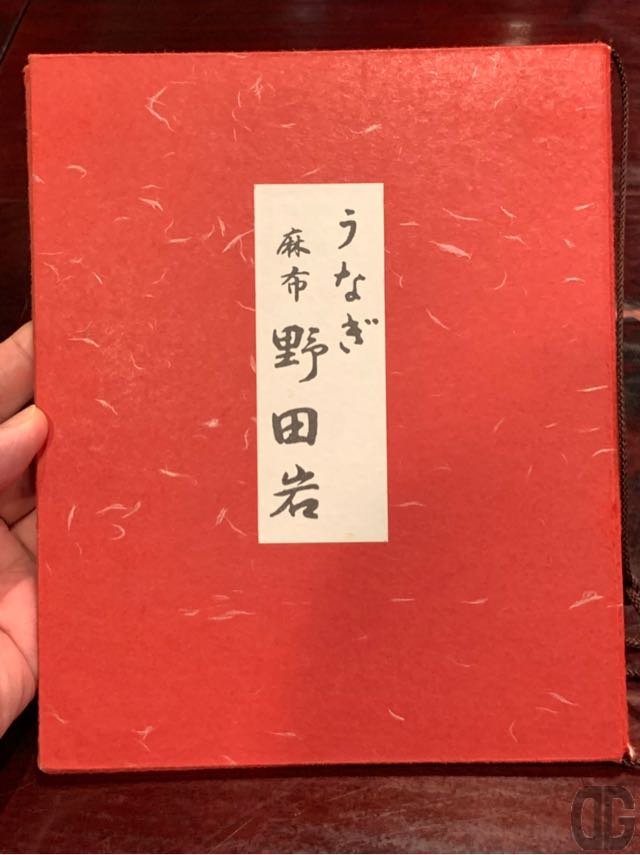 うなぎ
麻布 野田岩
DG